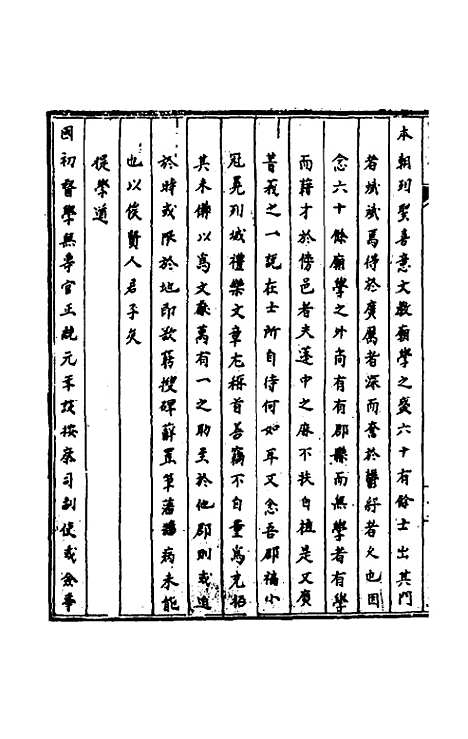 本朝列聖喜意文教廟學之盛六十有餘士出其門
者斌斌焉得於廣厲者深而奮於鬱紆者久也因
念六十餘廟學之外尚有有郡縣而無學者有學
而藉才於傍邑者夫蓬中之麻不扶自植是又廣
菁莪之一說在士所自待何如耳又念吾郡褊小
冠冕列城禮樂文章尤稱首善竊不自量為先梧
其未備以為文獻萬有一之助至於他郡則或迫
於時或限於地即欲窮搜碑蘚罝筆藩溷病未能
也以俟賢人君子矣
提學道
國初督學無專官正統元年設按察司副使或僉事